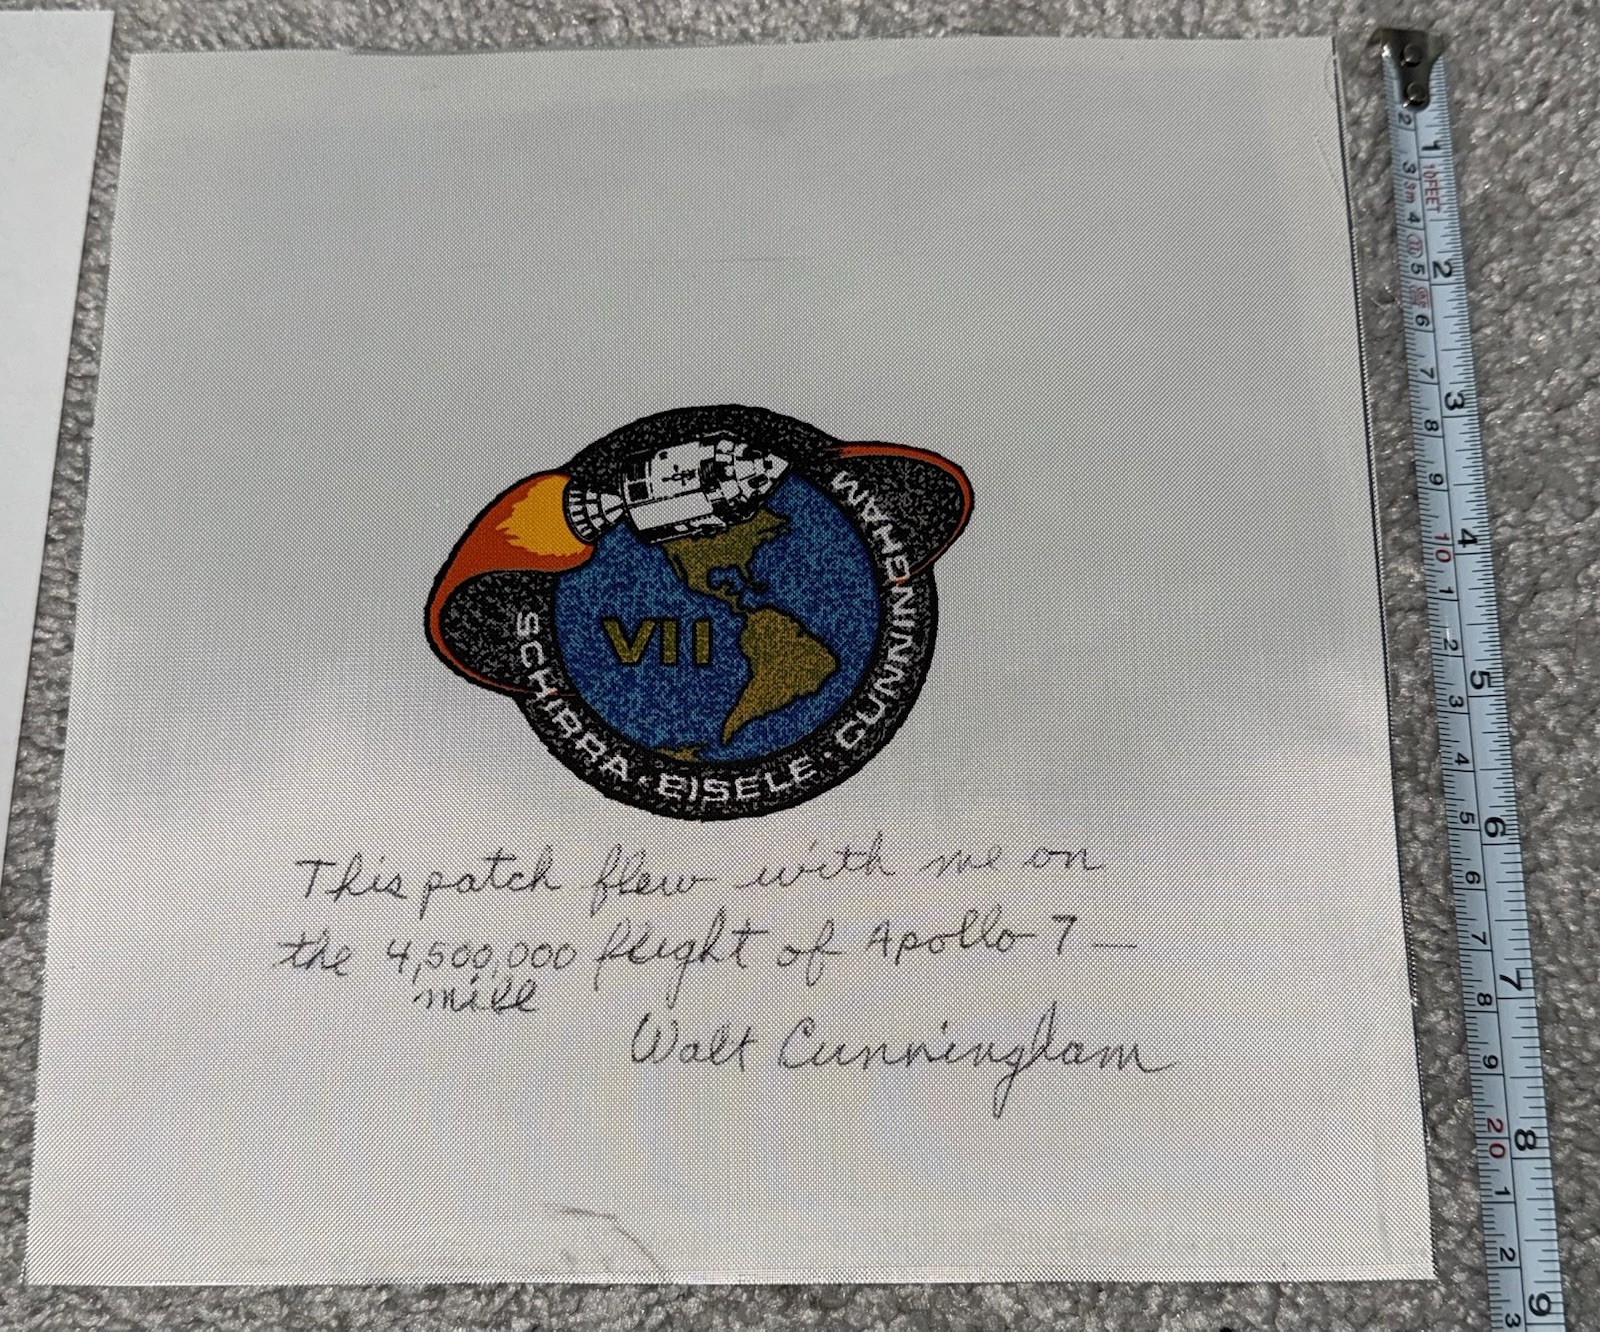 VII
SCHIRRA · EISELE · CUNNINGHAM
This patch flew with me on
the 4,500,000 flight of Apollo 7—
mile
Walt Cunningham
1
2
3
4
5
6
7
8
9
10FEET
2
3
3m
4
5
6
7
8
9
10
1
2
3
4
5
6
7
8
9
20
1
2
3